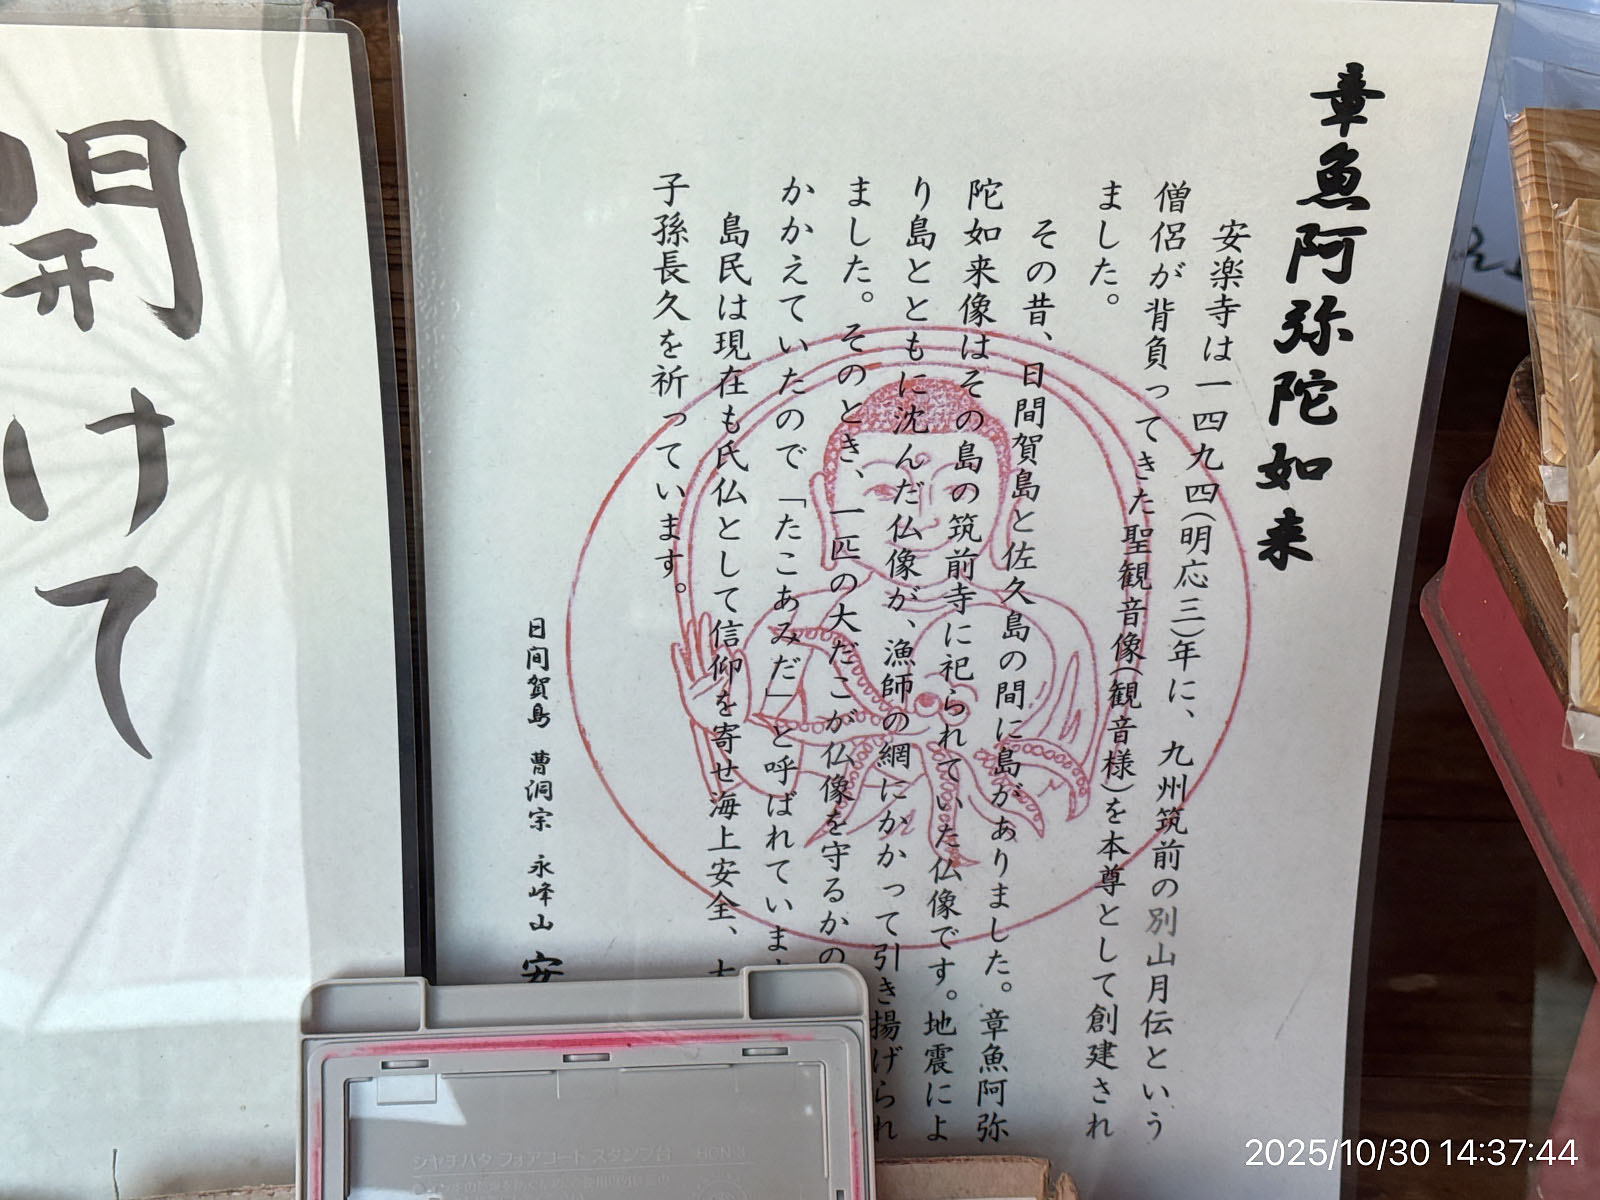 章魚阿弥陀如来
安楽寺は一四九四(明応三)年に、九州筑前の別山月伝という
僧侶が背負ってきた聖観音像(観音様)を本尊として創建され
ました。
その昔、日間賀島と佐久島の間に島がありました。章魚阿弥
陀如来像はその島の筑前寺に祀られていた仏像です。地震によ
り島とともに沈んだ仏像が、漁師の網にかかって引き揚げられ
ました。そのとき、一匹の大だこが仏像を守るかの
かかえていたので「たこあみだ」と呼ばれていま
島民は現在も氏仏として信仰を寄せ海上安全、
子孫長久を祈っています。
日間賀島 曹洞宗 永峰山 安
開けて
シヤチハタ フォアコート スタンプ台 HGN-3
2025/10/30 14:37:44